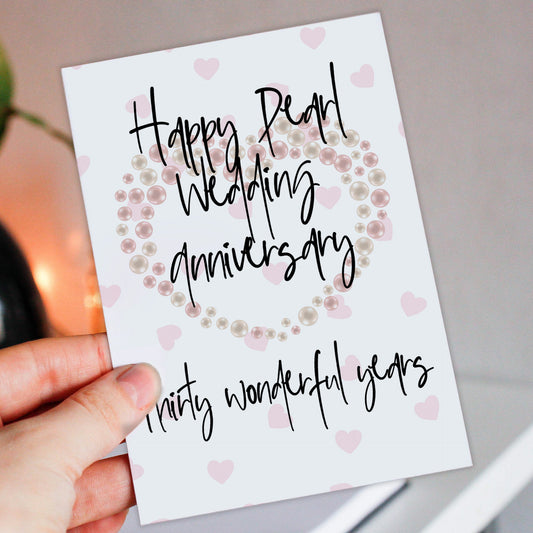 Happy Pearl
Wedding
anniversary
Thirty wonderful years